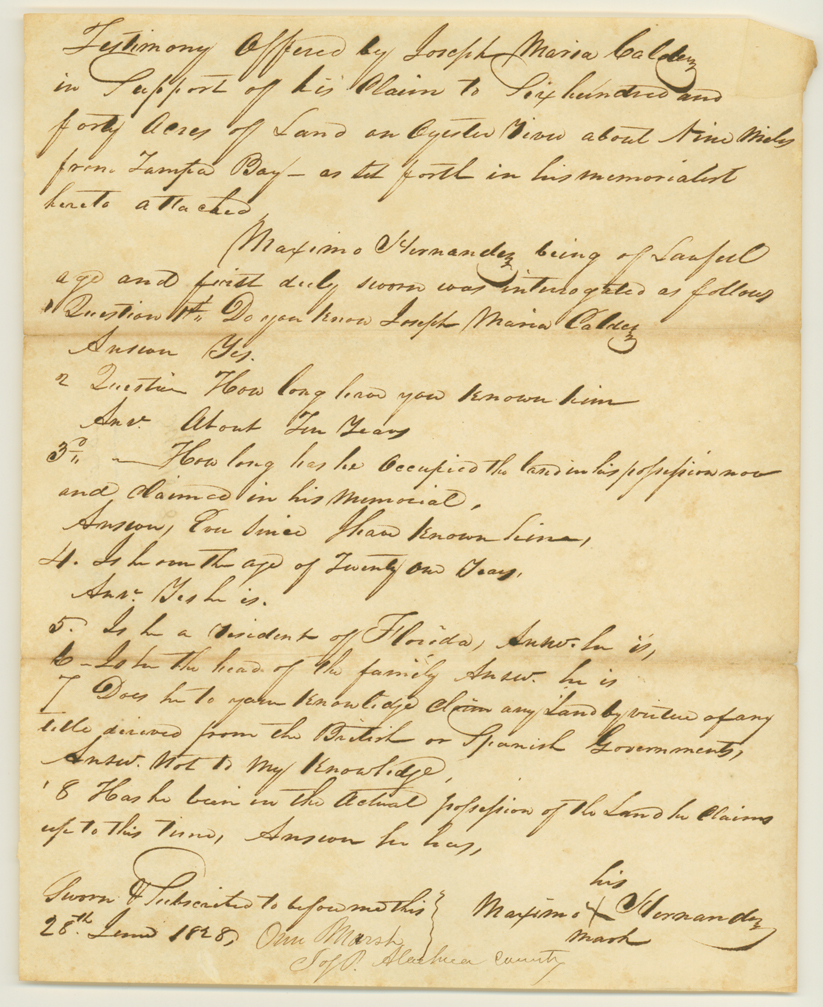 Testimony Offered by Joseph Maria Caldez
in Support of his Claim to Six hundred and
forty Acres of Land on Oyster River about Nine Miles
from Tampa Bay – as set forth in his memorialist
hereto attached
Maximo Hernandez being of Lawful
age and first duly sworn was interrogated as follows
Question 1st Do you know Joseph Maria Caldez
Answer Yes.
2 Question How long have you known him
Answ. About Ten Years
3d — How long has he Occupied the land in his possession now
and claimed in his Memorial,
Answer, Ever Since I have Known him,
4. Is he over the age of Twenty One Years,
Answ. Yes he is.
5. Is he a resident of Florida, Answ. he is,
6 – Is he the head of the family Answ. he is
7 Does he to your Knowledge Claim any Land by virtue of any
title derived from the British or Spanish Governments,
Answ. Not to My Knowledge,
8 Has he been in the Actual possession of the Land he Claims
up to this Time, Answer he has,
his
Sworn & Subscribed to before me this Maximo X Hernandez
28th June 1828, Marsh mark
J of P. Alachua County